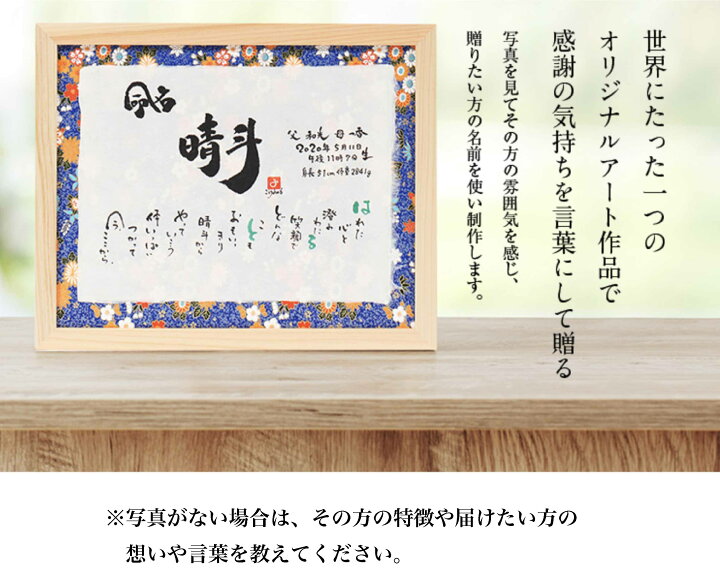 世界にたった一つの
オリジナルアート作品で
感謝の気持ちを言葉にして贈る
写真を見てその方の雰囲気を感じ、
贈りたい方の名前を使い制作します。
命名
晴斗
2020年5月11日
午後11時7分生
身長51cm 体重2841g
はれた
心と
澄みわたる
笑顔で
どんな
こ
とも
おもいきり
晴斗から
やっていこう
つかって
今、ここから
※写真がない場合は、その方の特徴や届けたい方の
想いや言葉を教えてください。